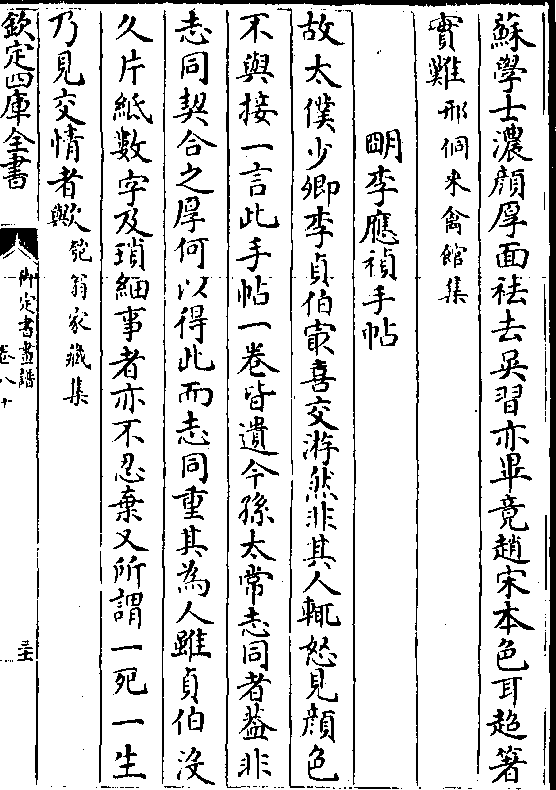 蘇學士濃顔厚面祛去吳習亦畢竟趙宋本色耳超箸
實難邢侗來禽館集
明李應禎手帖
故太僕少卿李貞伯㝡喜交游然非其人輒怒見顔色
不與接一言此手帖一卷皆遺今孫太常志同者葢非
志同契合之厚何以得此而志同重其為人雖貞伯沒
久片紙數字及瑣細事者亦不忍棄又所謂一死一生
乃見交情者歟匏翁家藏集
欽定四庫全書
御定書畫譜
卷八十
三十